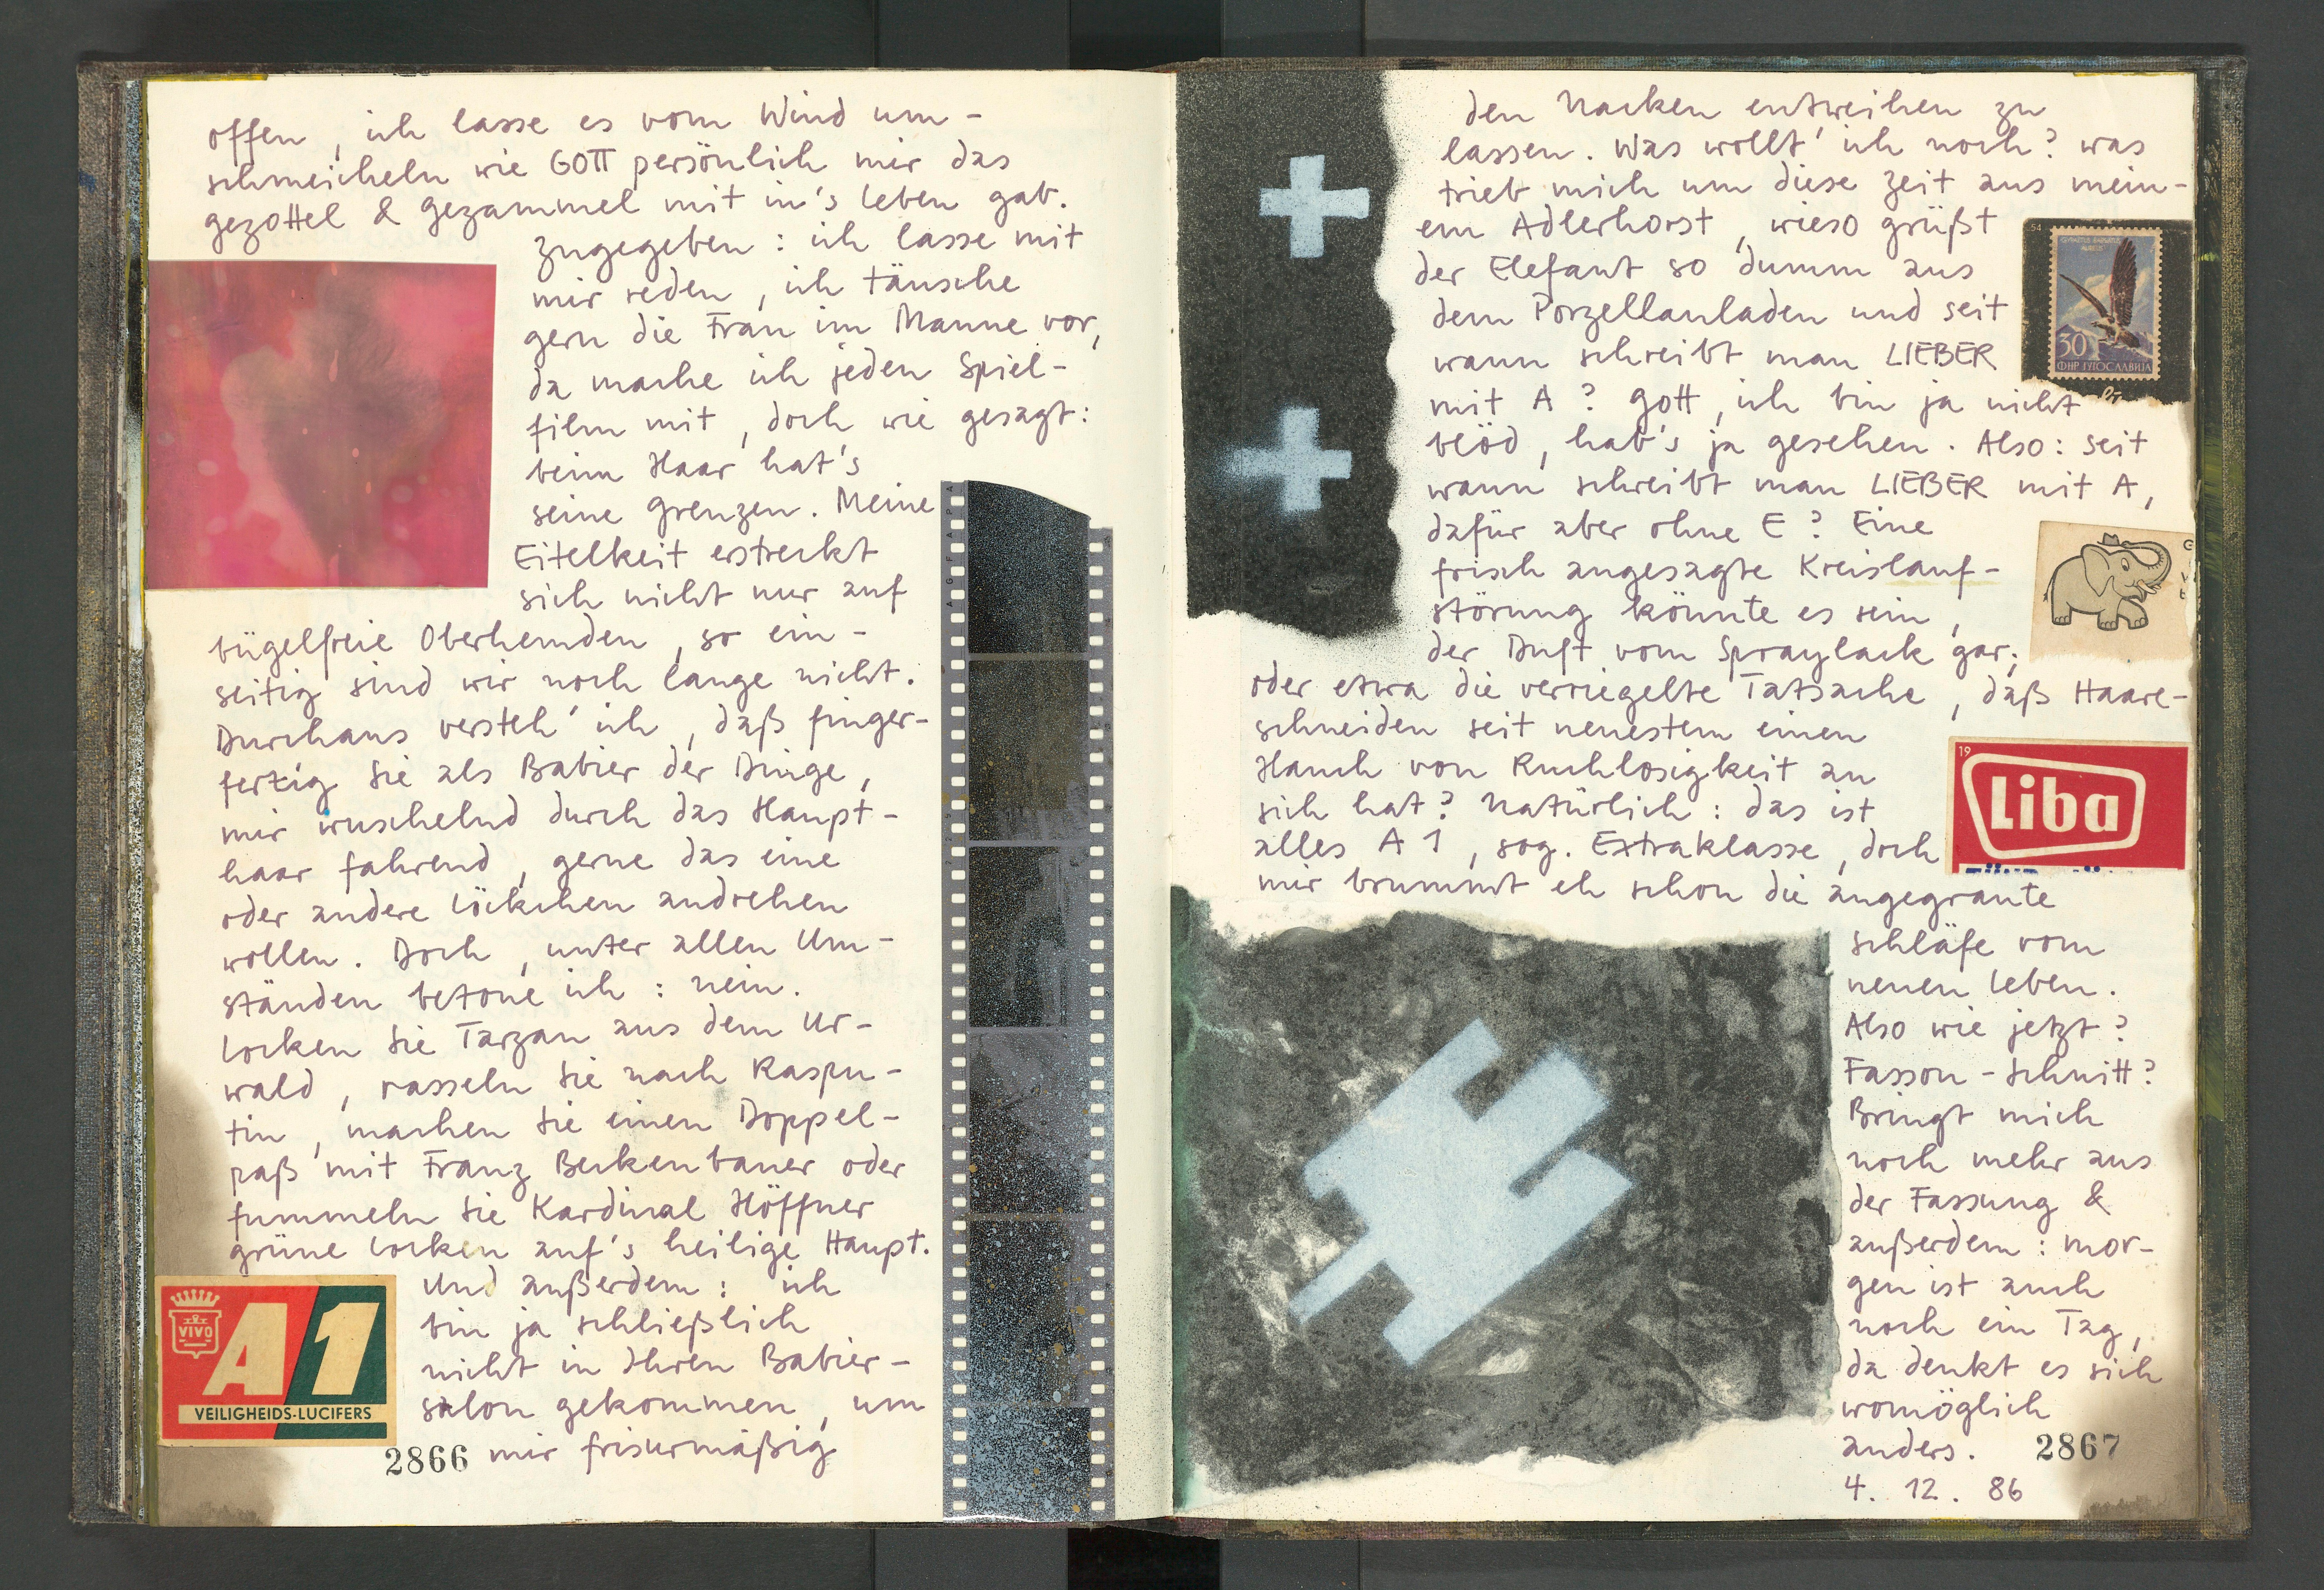 offen, ich lasse es vom Wind um-
schmeicheln wie GOTT persönlich mir das
gezottel & gezammel mit in's Leben gab.
zugegeben : ich lasse mit
mir reden, ich täusche
gern die Frau im Manne vor,
da mache ich jeden Spiel-
film mit, doch wie gesagt:
beim Haar hat's
seine Grenzen. Meine
Eitelkeit erstreckt
sich nicht nur auf
bügelfreie Oberhemden, so ein-
seitig sind wir noch lange nicht.
Durchaus versteh' ich, daß finger-
fertig Sie als Babier der Dinge,
mir wuschelnd durch das Haupt-
haar fahrend, gerne das eine
oder andere Löckchen andrehen
wollen. Doch, unter allen Um-
ständen betone ich : nein.
Locken Sie Tarzan aus dem Ur-
wald, rasseln Sie nach Raspu-
tin, machen Sie einen Doppel-
paß mit Franz Beckenbauer oder
fummeln Sie Kardinal Höffner
grüne Locken auf's heilige Haupt.
Und außerdem : ich
bin ja schließlich
nicht in Ihren Babier-
salon gekommen, um
mir frisurmäßig
VIVO
A1
VEILIGHEIDS-LUCIFERS
2866
den Nacken entweihen zu
lassen. Was wollt' ich noch? was
trieb mich um diese Zeit aus mein-
em Adlerhorst, wieso grüßt
der Elefant so dumm aus
dem Porzellanladen und seit
wann schreibt man LIEBER
mit A? Gott, ich bin ja nicht
blöd, hab's ja gesehen. Also: seit
wann schreibt man LIEBER mit A,
dafür aber ohne E? Eine
frisch angesagte Kreislauf-
störung könnte es sein,
der Duft vom Spraylack gar;
oder etwa die verriegelte Tatsache, daß Haare-
schneiden seit neuestem einen
Hauch von Ruchlosigkeit an
sich hat? Natürlich : das ist
alles A1, sog. Extraklasse, doch
mir brummt eh schon die angegraute
Schläfe vom
neuen Leben.
Also wie jetzt?
Fasson-Schnitt?
Bringt mich
noch mehr aus
der Fassung &
außerdem : mor-
gen ist auch
noch ein Tag,
da denkt es sich
womöglich
anders.
4. 12. 86
54
30
ФНР ЈУГОСЛАВИЈА
19
Liba
2867